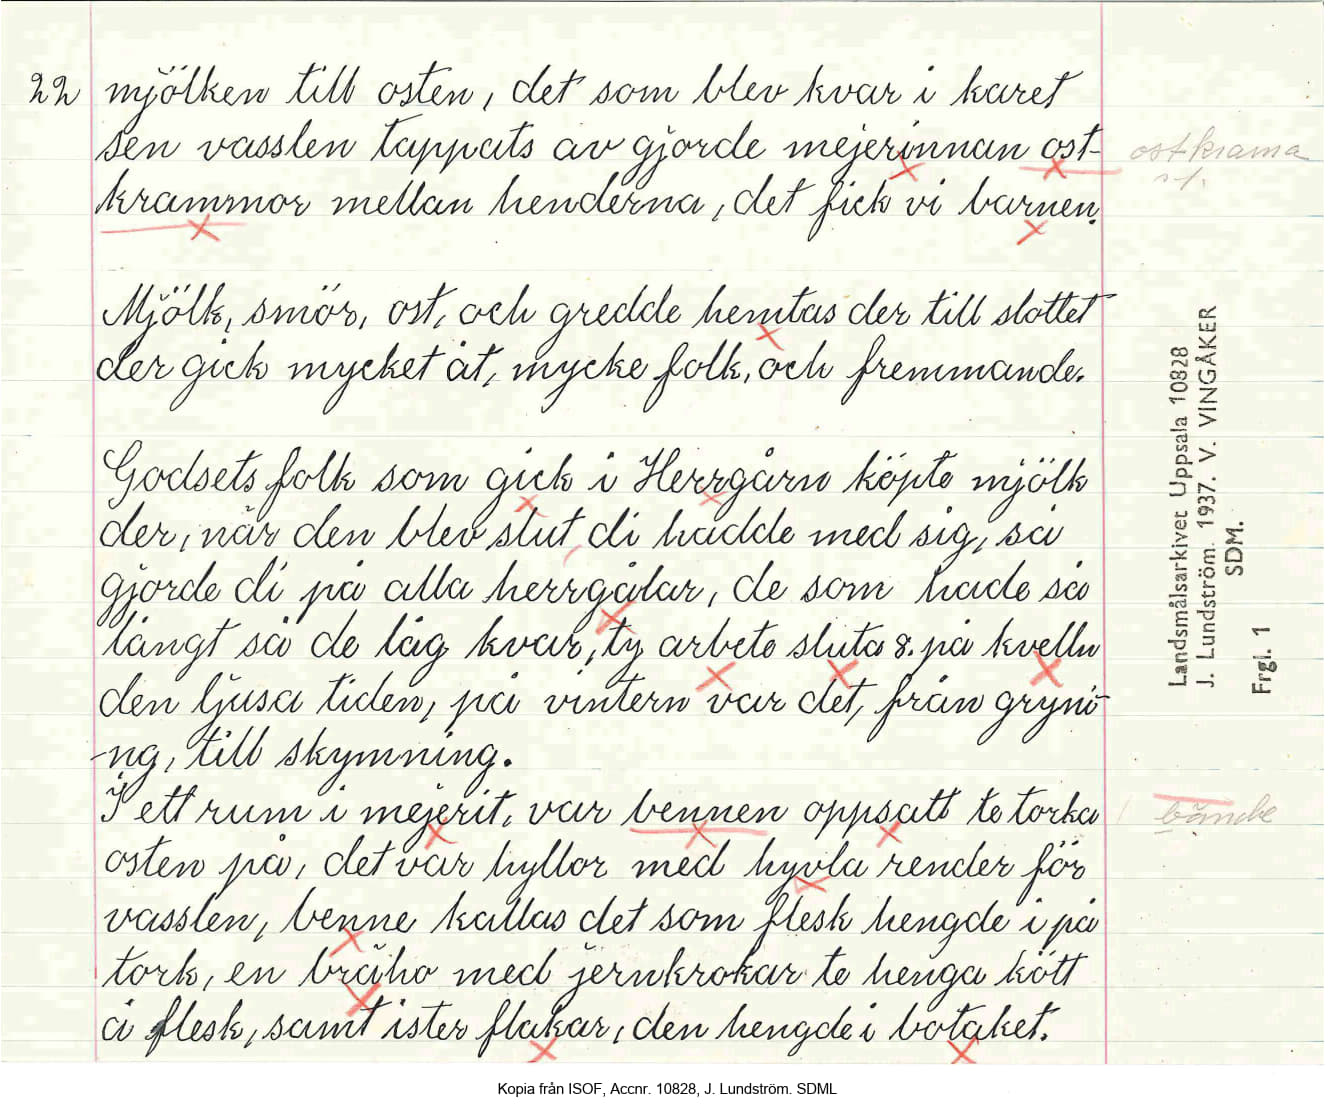 22 mjölken till osten, det som blev kvar i karet
sen vasslen tappats av gjorde mejerinnan ost-
krammor mellan henderna, det fick vi barnen.
ostkrama
Mjölk, smör, ost, och gredde hemtas der till slottet
der gick mycket åt, mycke folk, och fremmande.
Godsets folk som gick i Herrgårn köpte mjölk
der, när den blev slut, di hadde med sig, så
gjorde di på alla herrgålar, de som hade så
långt så de låg kvar, ty arbete sluta 8. på kvelln
den ljusa tiden, på vintern var det, från gryni-
ng, till skymning.
I ett rum i mejerit, var bennen oppsatt te torka
osten på, det var hyllor med hyvla render för
vasslen, benne kallas det som flesk hengde i på
tork, en bräho med jernkrokar te henga kött
å flesk, samt ister flakar, den hengde i botaket.
bände
Landsmålsarkivet Uppsala 10828
J. Lundström. 1937. V. VINGÅKER
SDM.
Frgl. 1
Kopia från ISOF, Accnr. 10828, J. Lundström. SDML